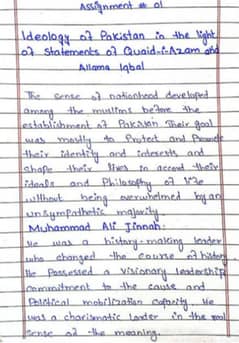 Assignment # 01
Ideology of Pakistan in the light
of Statements of Quaid-i-Azam and
Allama Iqbal
The sense of nationhood developed
among the muslims before the
establishment of Pakistan Their goal
was mostly to Protect and Promote
their identity and interests and
shape their lives in accord their
ideals and Philosophy of life
without being overwhelmed by an
unsympathetic majority.
Muhammad Ali Jinnah:
He was a history-making leader
who changed the course of history
He Possessed a visionary leadership
commitment to the cause and
Political mobilization capacity. He
was a charismatic leader in the real
sense of the meaning.